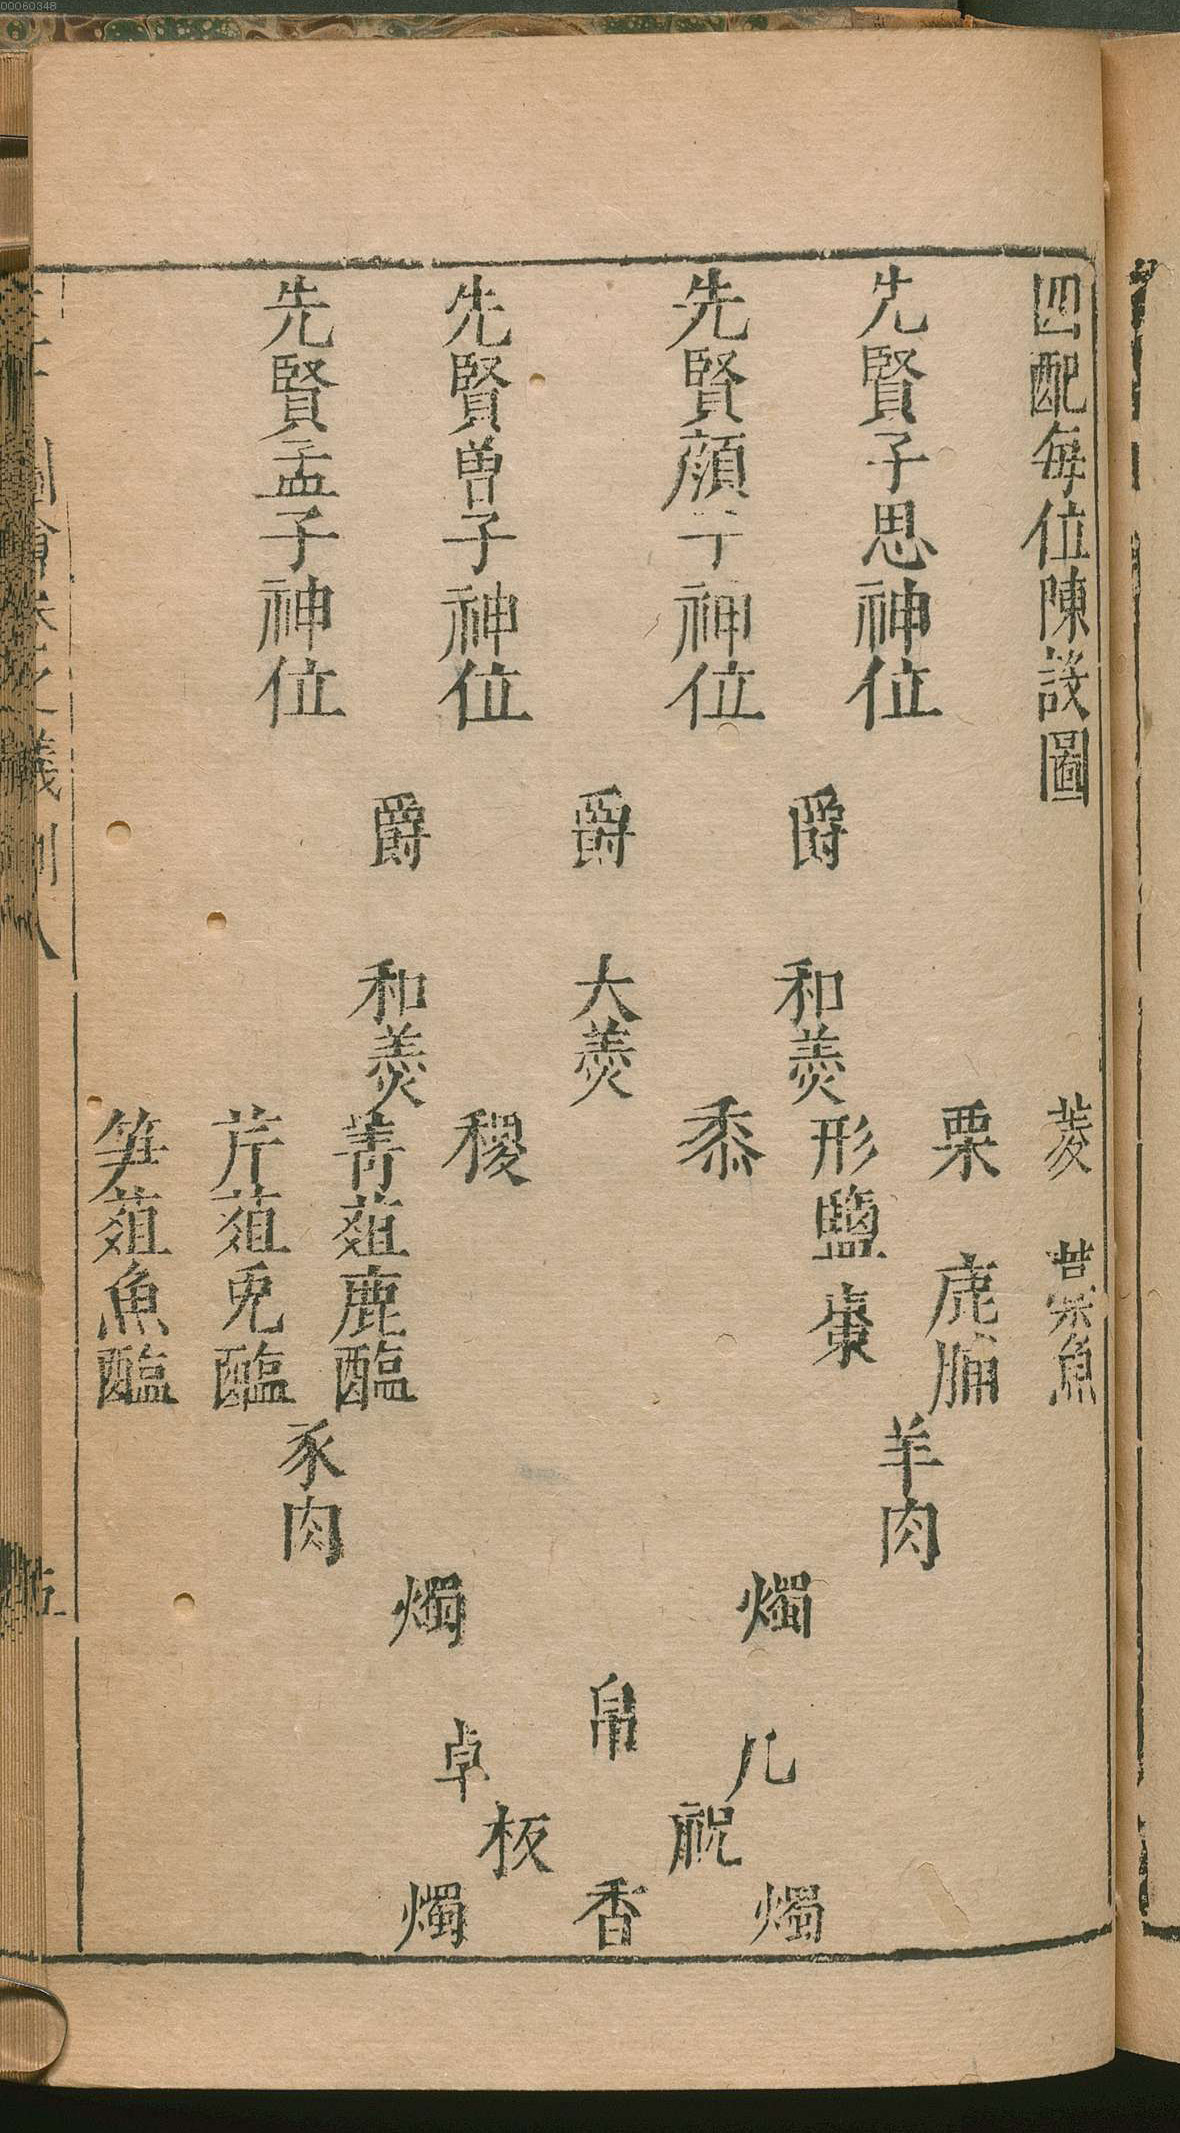 四配每位陳設圖
先賢子思神位
先賢顔子神位
先賢曾子神位
先賢孟子神位
爵
爵
爵
和羮
大羮
和羮
菱
栗
形鹽
黍
稷
菁葅鹿醢
芹葅兎醢
笋葅魚醢
魚
鹿脯
棗
羊肉
豕肉
燭
燭
帛
几
卓
祝
板
燭
香
燭
00060348